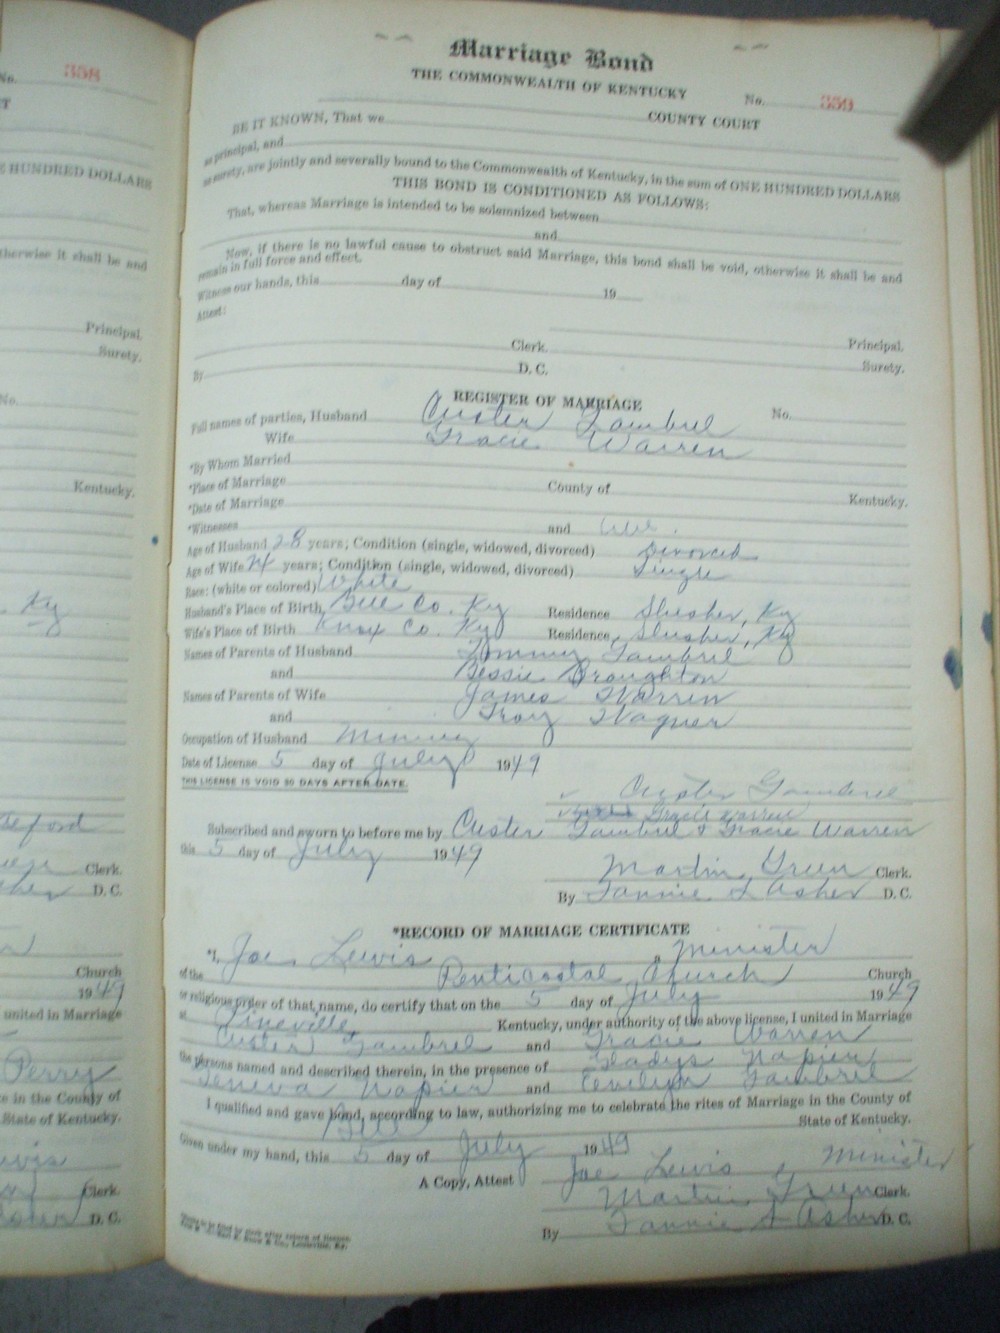 358
No.
HUNDRED DOLLARS
therwise it shall be and
Principal.
Surety.
No.
Kentucky.
Ky
Clerk.
D. C.
Church
1949
united in Marriage
Perry
ce in the County of
State of Kentucky.
Clerk.
D. C.
Marriage Bond
THE COMMONWEALTH OF KENTUCKY
No. 359
COUNTY COURT
BE IT KNOWN, That we
as principal, and
as surety, are jointly and severally bound to the Commonwealth of Kentucky, in the sum of ONE HUNDRED DOLLARS
THIS BOND IS CONDITIONED AS FOLLOWS:
That, whereas Marriage is intended to be solemnized between
and
Now, if there is no lawful cause to obstruct said Marriage, this bond shall be void, otherwise it shall be and
remain in full force and effect.
Witness our hands, this day of 19
Attest:
Clerk. Principal.
By D. C. Surety.
REGISTER OF MARRIAGE
Full names of parties, Husband Custer Gambrel No.
Wife Gracie Warren
*By Whom Married
*Place of Marriage County of Kentucky.
*Date of Marriage
*Witnesses and
Age of Husband 28 years; Condition (single, widowed, divorced) Divorced
Age of Wife 24 years; Condition (single, widowed, divorced) Single
Race: (white or colored) White
Husband's Place of Birth, Bell Co. Ky Residence Slusher, Ky
Wife's Place of Birth Knox Co. Ky Residence, Slusher, Ky
Names of Parents of Husband Tommy Gambrel
and Bessie Broughton
Names of Parents of Wife James Warren
and Troy Wagner
Occupation of Husband Mining
Date of License 5 day of July 1949
THIS LICENSE IS VOID 30 DAYS AFTER DATE.
Custer Gambrel
Gracie Warren
Subscribed and sworn to before me by Custer Gambrel & Gracie Warren
this 5 day of July 1949
Martin Green Clerk.
By Fannie L Asher D. C.
*RECORD OF MARRIAGE CERTIFICATE
*I, Joe Lewis a Minister
of the Penticostal Church Church
or religious order of that name, do certify that on the 5 day of July 1949
at Pineville, Kentucky, under authority of the above license, I united in Marriage
Custer Gambrel and Gracie Warren
the persons named and described therein, in the presence of Gladys Napier
Geneva Napier and Gambrel
I qualified and gave bond, according to law, authorizing me to celebrate the rites of Marriage in the County of
Bell State of Kentucky.
Given under my hand, this 5 day of July 1949
Joe Lewis, Minister
A Copy, Attest Martin Green Clerk.
By Fannie L Asher D. C.